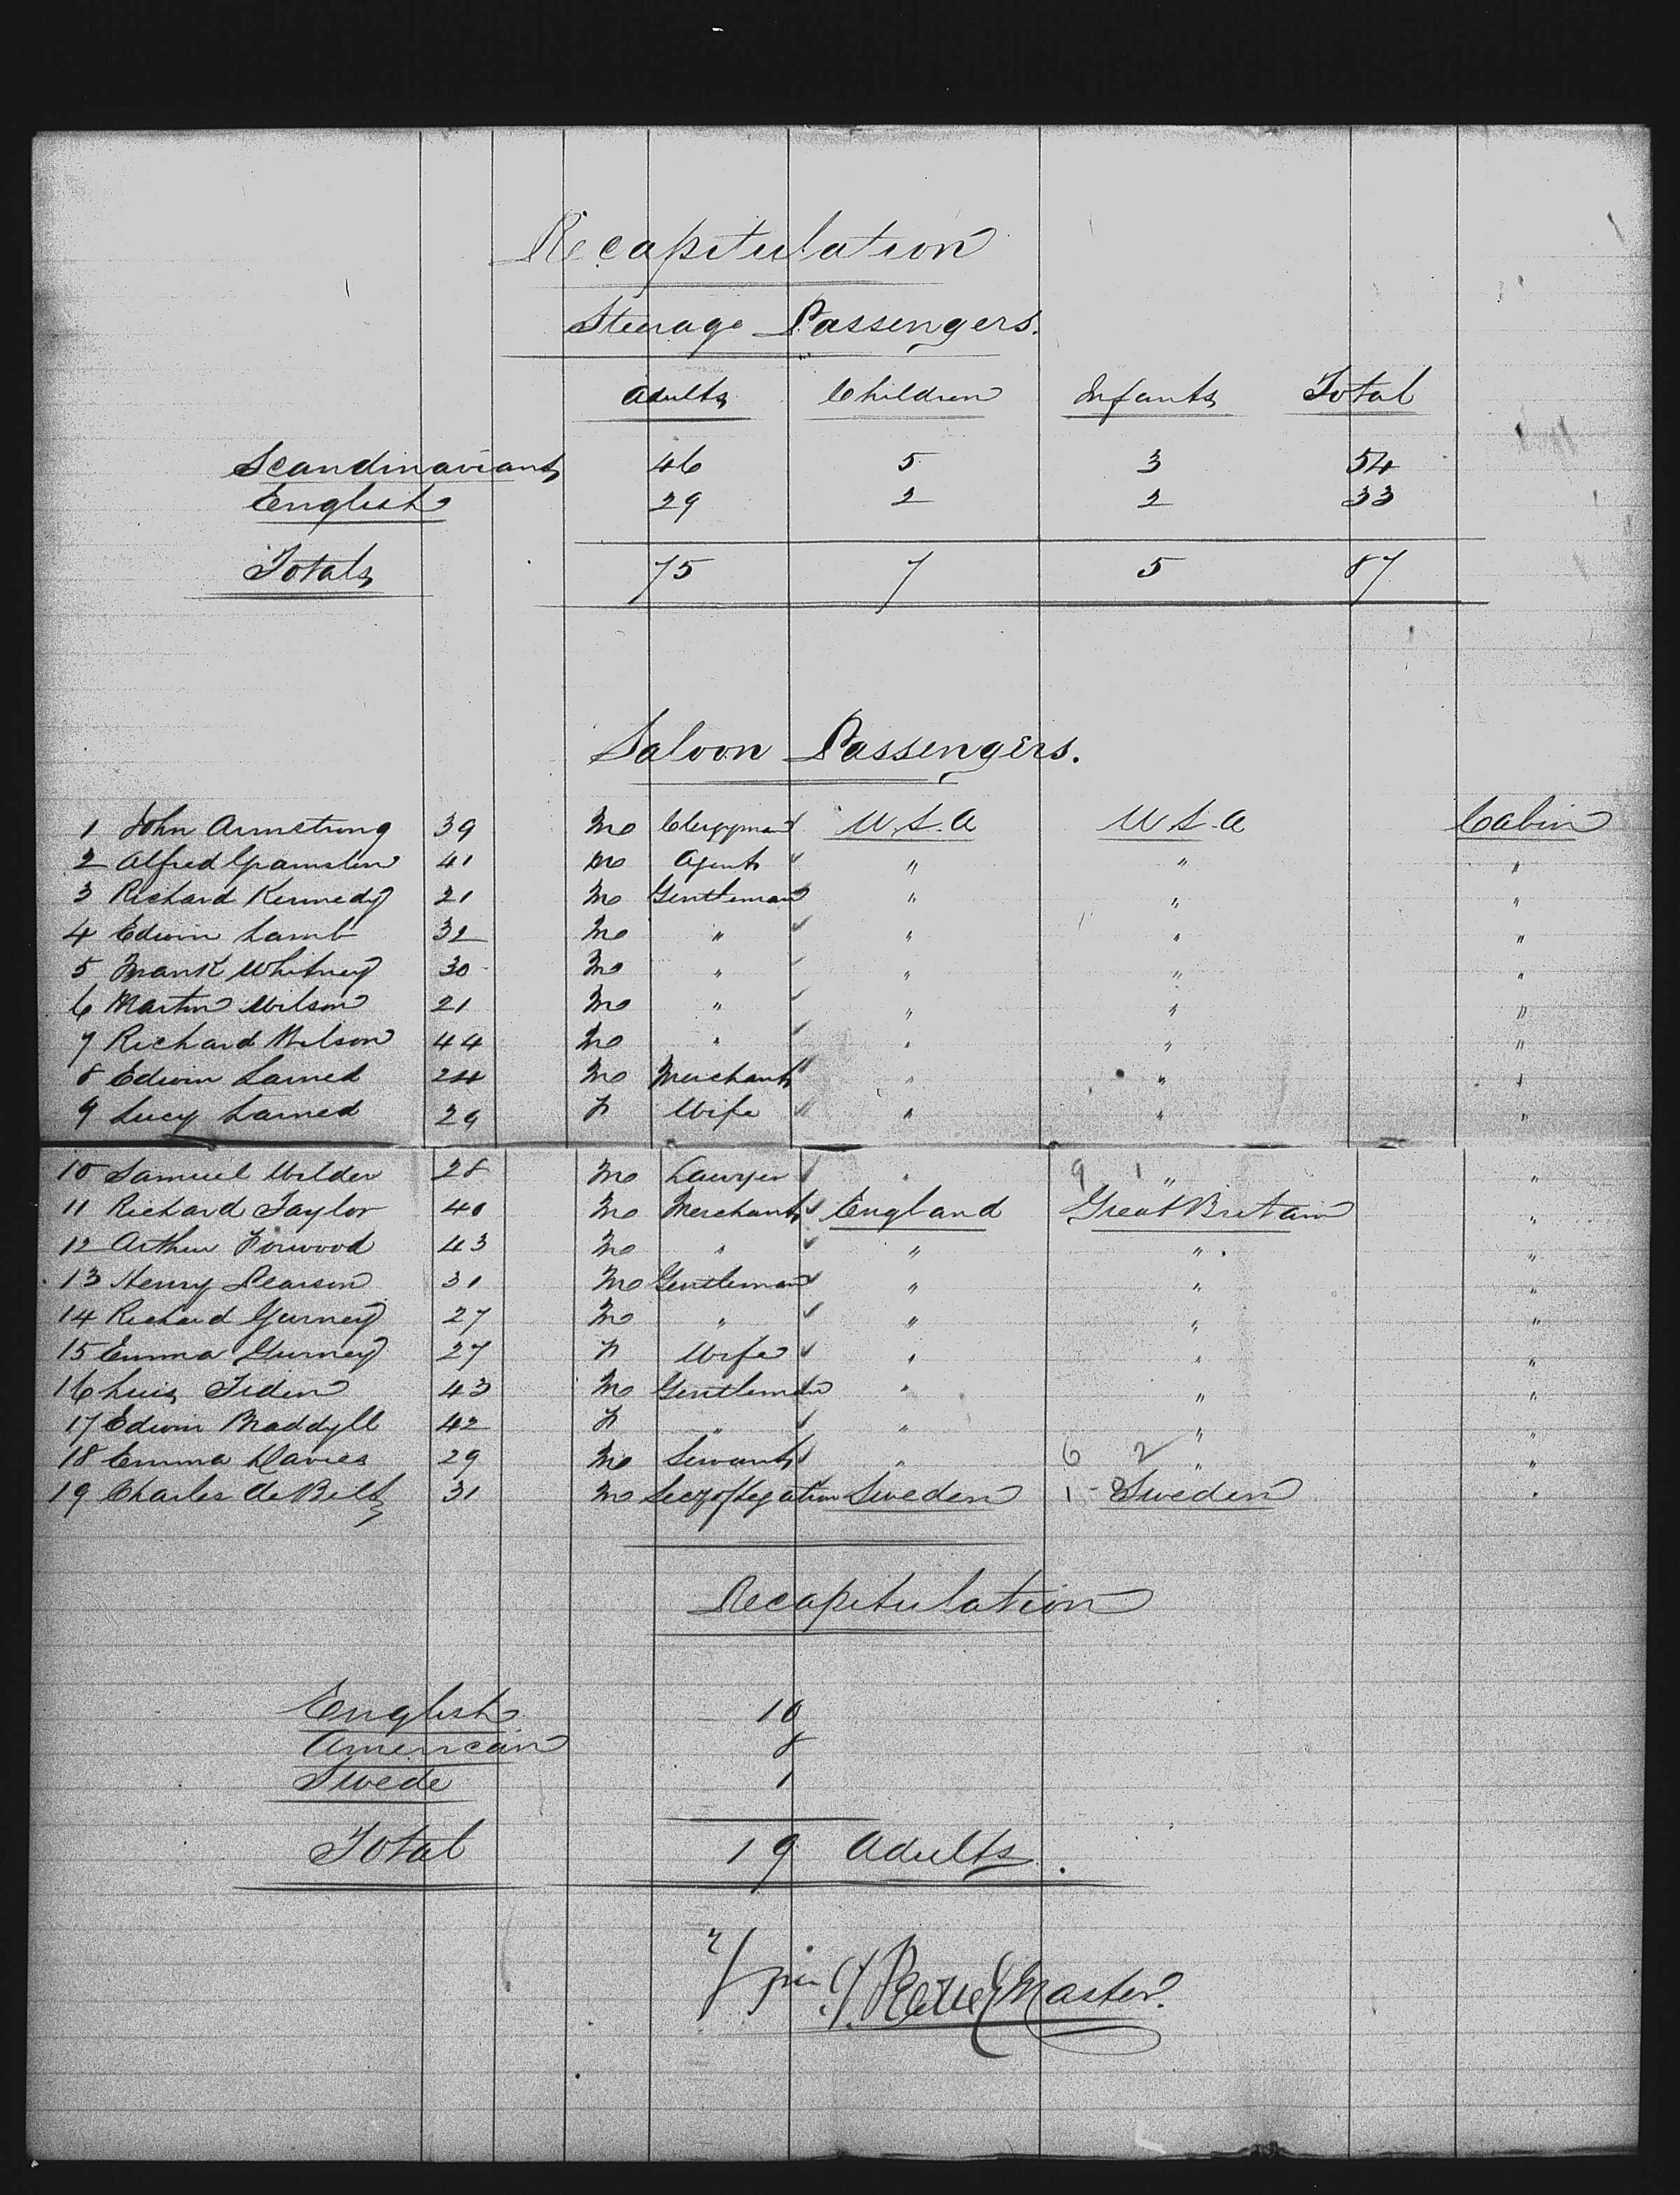 Recapitulation
Steerage Passengers.
Adults Children Infants Total
Scandinavians 46 5 3 54
English 29 2 2 33
Totals 75 7 5 87
Saloon Passengers.
1 John Armstrong 39 M Clergyman U.S.A U.S.A Cabin
2 Alfred 41 M Agent " " "
3 Richard Kennedy 21 M Gentleman " " "
4 Edwin Lamb 32 M " " " "
5 Frank Whitney 30 M " " " "
6 Martin Wilson 21 M " " " "
7 Richard Wilson 44 M " " " "
8 Edwin Larned 24 M Merchant " " "
9 Lucy Larned 29 F Wife " " "
10 Samuel Wilder 28 M Lawyer " 9 1 " "
11 Richard Taylor 40 M Merchant England Great Britain "
12 Arthur Forwood 43 M " " " "
13 Henry Pearson 31 M Gentleman " " "
14 Richard Gurney 27 M " " " "
15 Emma Gurney 27 F Wife " " "
16 43 M Gentleman " " "
17 Edwin Braddyll 42 F " " " "
18 Emma Davies 29 M Servant " 6 2 " "
19 Charles de Belt 31 M Secy of Legation Sweden 1 - Sweden "
Recapitulation
English 10
American 8
Swede 1
Total 19 Adults.
Master.